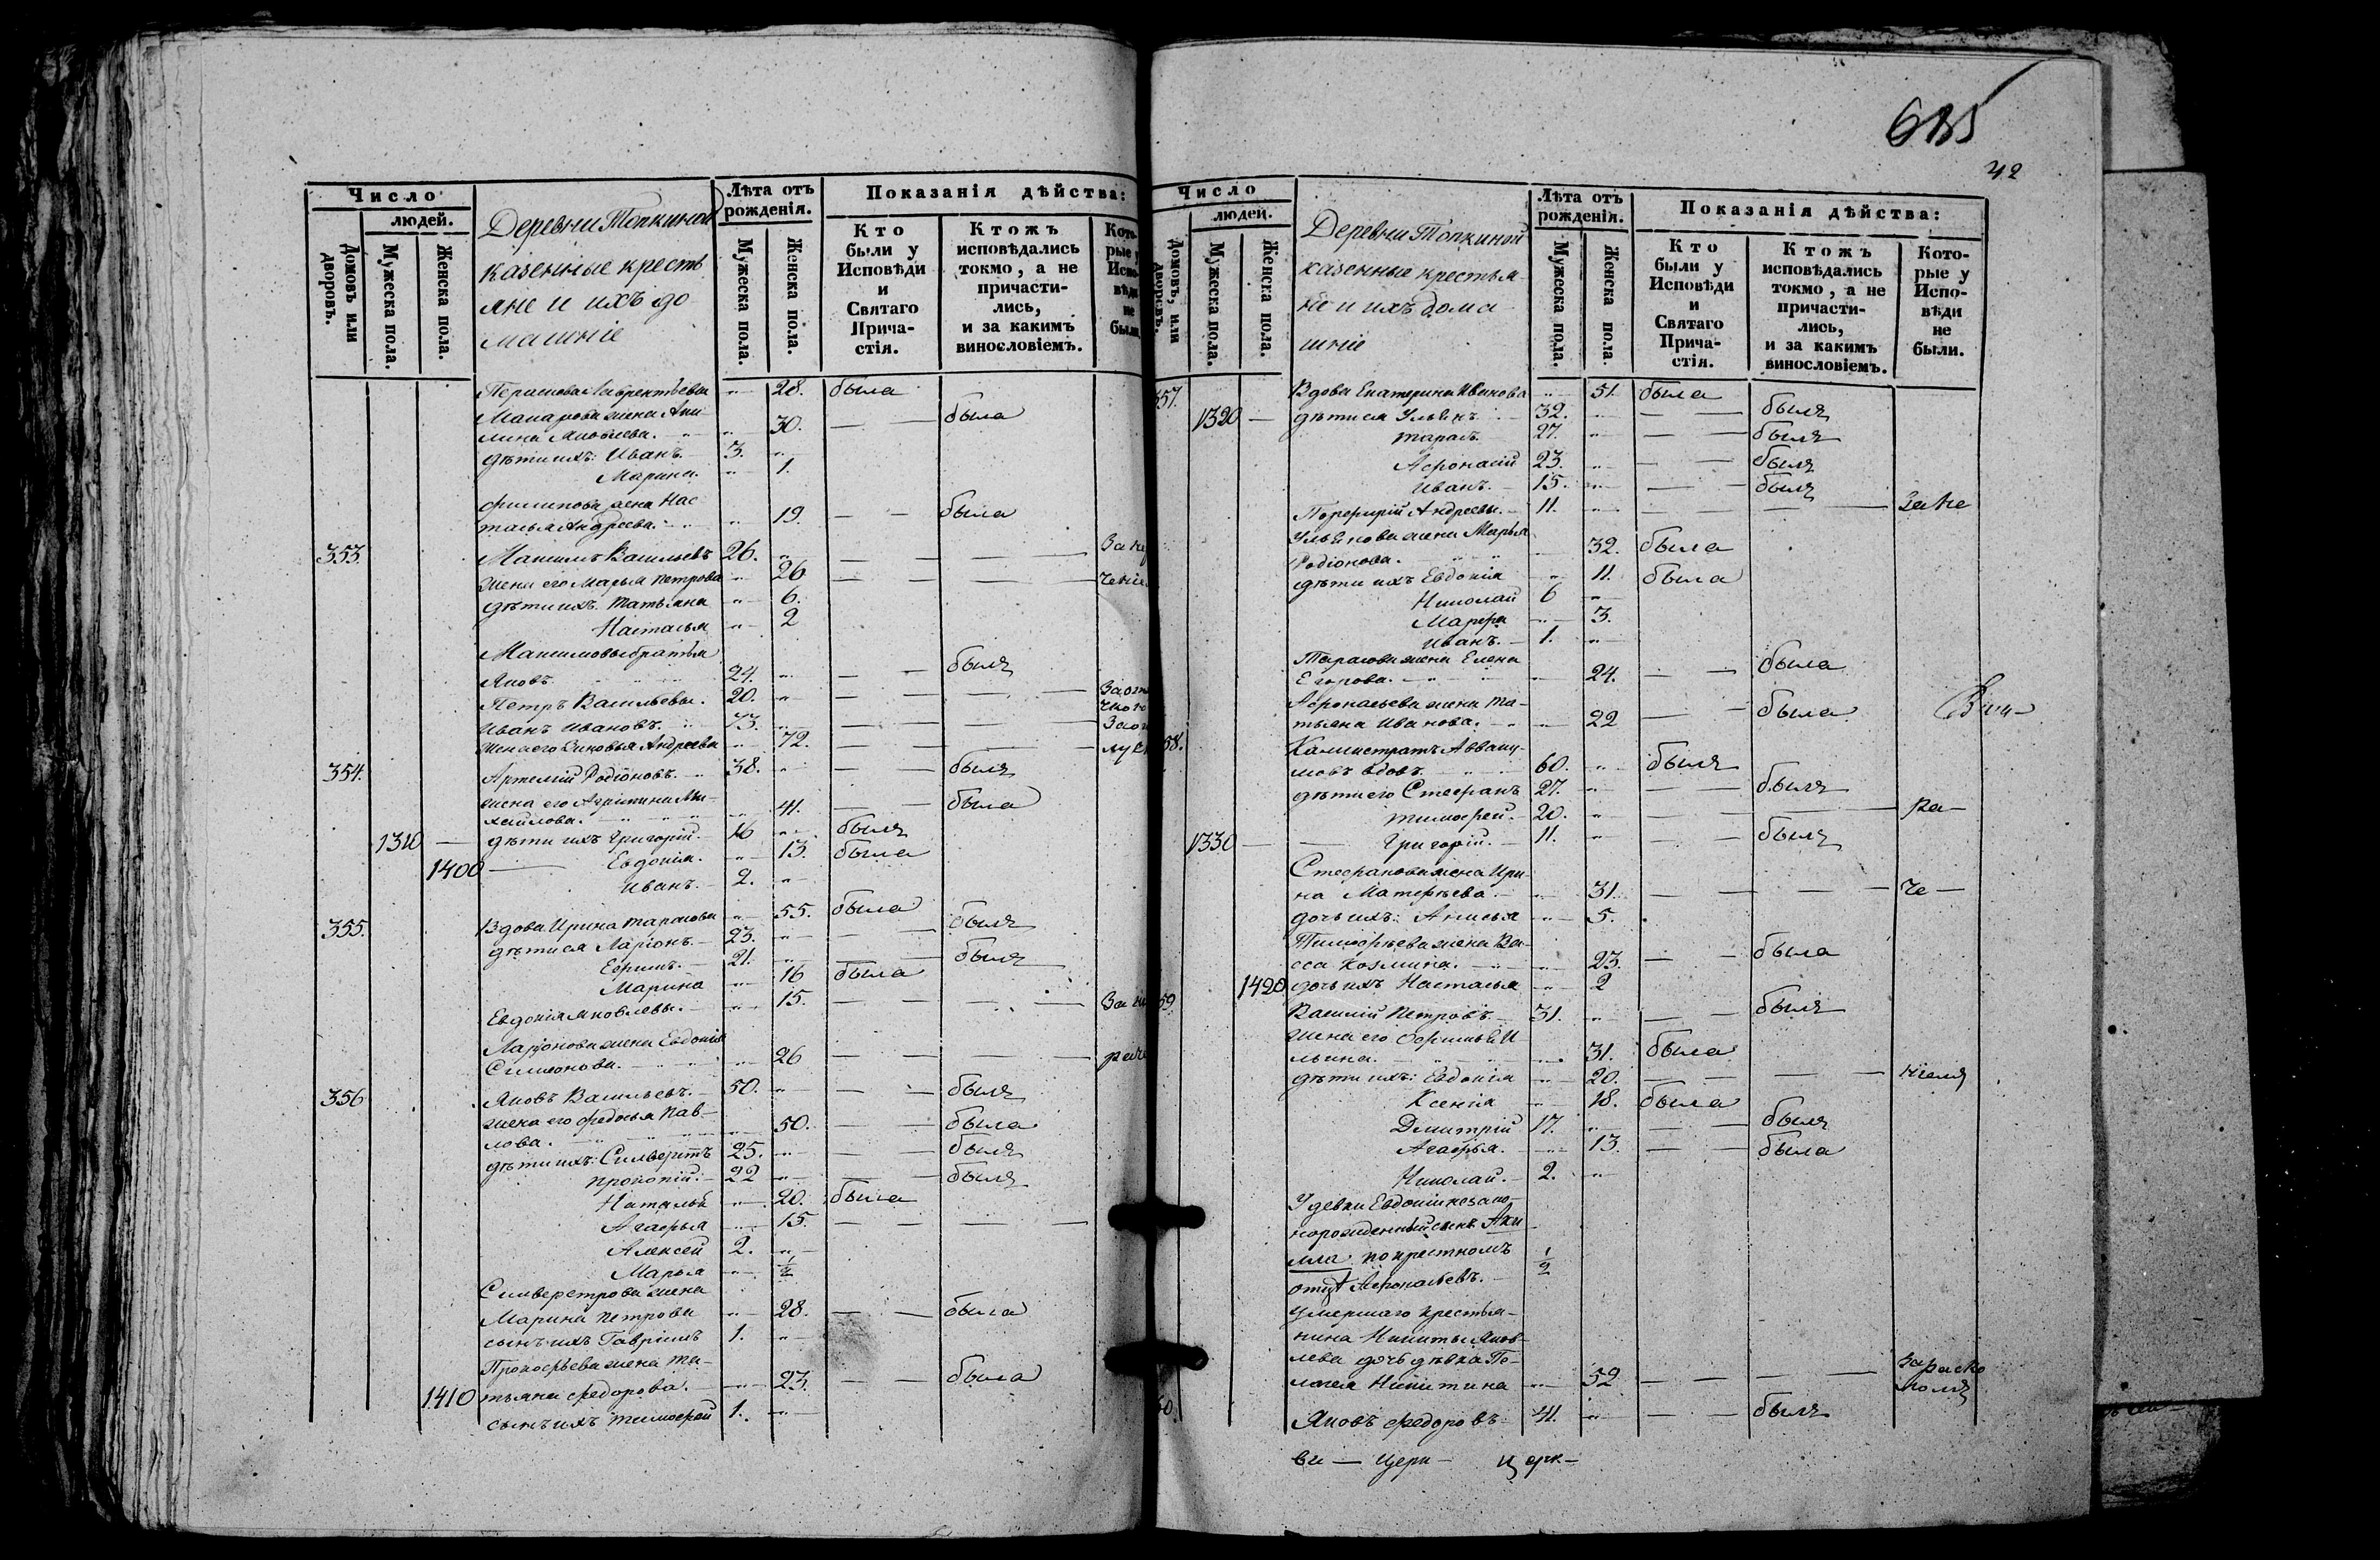 635
42
Число
людей.
Домовъ или дворовъ.
Мужеска пола.
Женска пола.
Деревни Топкиной
казенные кресть
яне и ихъ до
машніе
Лѣта отъ рожденія.
Мужеска пола.
Женска пола.
Показанія дѣйства:
Кто были у Исповѣди и Святаго Прича-стія.
Ктожъ исповѣдались токмо, а не причасти-лись, и за какимъ винословіемъ.
Кото-
рые у
Испо-
вѣди
не
были.
Лаврентьева " 28. была
Макарова жена Аки
лина Яковлева. " 30. — — была
дѣти ихъ: Иванъ. 3. "
Марина. " 1.
Филипова жена Нас
тасья Андреева. " 19. — — была
353. Максимъ Васильевъ 26. " — — —
жена его Марья Петрова " 26 — — —
дѣти ихъ: Татьяна " 6.
Настасья " 2
Максимовы братья
Яковъ 24. " — — былъ
Петръ Васильевы. 20. " — — —
Иванъ Ивановъ. 73. " — — —
жена его Зиновья Андреева " 72. — — —
354. Артемій Родіоновъ. 38. " — — былъ
жена его Агрипина Ми-
хайлова. " 41. — — была
1310 — дѣти ихъ Григорій. 16 " былъ
1400 — Евдокія. " 13. была
Иванъ. 2. "
355. Вдова Ирина Тарасова " 55. была
дѣти ея Ларіонъ. 23. " — — былъ
Ефимъ. 21. " — — былъ
Марина " 16 была
Евдокія Яковлевы. " 15. — — —
Ларіонова жена Евдокія
Симионова. " 26 — — —
356 Яковъ Васильевъ. 50. " — — былъ
жена его Федосья Пав-
лова. " 50. — — была
дѣти ихъ: Сильверстъ 25. " — — былъ
Прокопій. 22 " — — былъ
Наталья " 20. была
Агафья " 15. — — —
Алексей 2. "
Марья " 1/2
Сильверстрова жена
Марина Петрова " 28. — — была
сынъ ихъ Гаврилъ 1. "
Прокофьева жена Та-
1410 тьяна Федорова. " 23. — — была
сынъ ихъ Тимофей 1. "
Число
людей.
Домовъ, или дворовъ.
Мужеска пола.
Женска пола.
Деревни Топкиной
казенные крестья-
не и ихъ дома
шніе
Лѣта отъ рожденія.
Мужеска пола.
Женска пола.
Показанія дѣйства:
Кто были у Исповѣди и Святаго Прича-стія.
Ктожъ исповѣдались токмо, а не причасти-лись, и за какимъ винословіемъ.
Кото-рые у Испо-вѣди не были.
357. Вдова Екатерина Иванова " 51. была
1320 — дѣти ея Ульянъ 32. " — — былъ
Тарасъ. 27. " — — былъ
Афонасій 23. " — — былъ
Иванъ. 15. " — — былъ
Порфирій Андреевы. 11. " — — —
Ульянова жена Марья
Родіонова. 32. была
дѣти ихъ Евдокія " 11. была
Николай 6 "
Марфа " 3.
Иванъ. 1. "
Тарасова жена Елена
Егорова. 24. — — была
Афонасьева жена Та-
тьяна Иванова. " 22 — — была
58. Калистратъ Авваку-
мовъ вдовъ. 60. " былъ
дѣти его Стефанъ 27. " — — былъ
Тимофей. 20. " — — — ра—
1330 — Григорій. 11. " — — былъ
Стефанова жена Ири-
на Матфѣева. " 31. — — — че—
дочь ихъ: Анисья " 5.
Тимофѣева жена Ва-
сса Козмина. " 23. — — была
1420 дочь ихъ Настасья " 2
59. Василій Петровъ. 31. " — — былъ
жена его Офимья И
льина. " 31. была
дѣти ихъ: Евдокія " 20. — — — ніемъ
Ксенія " 18. была
Дмитрій 17. " — — былъ
Агафья. " 13. — — была
Николай. 2. "
У девки Евдокіи незако-
норожденный сынъ Аки
мла по крестномъ
отцѣ Афонасьевъ. 1/2
Умершаго крестья-
нина Никиты Яков-
лева дочь дѣвка Пе-
лагея Никитина " 52 — — — за раско
ломъ
60. Яковъ Федоровъ 41. " — — былъ